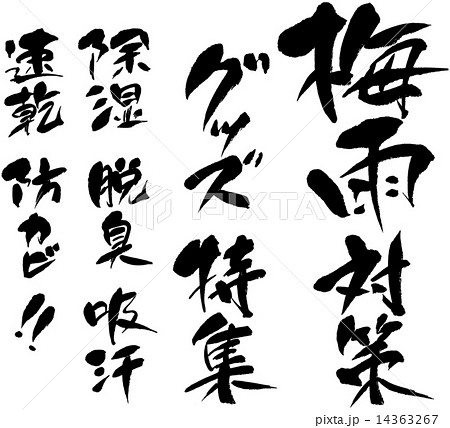 梅雨対策
グッズ特集
除湿 脱臭 吸汗
速乾 防カビ!!
PIXTA
pixta.jp - 14363267